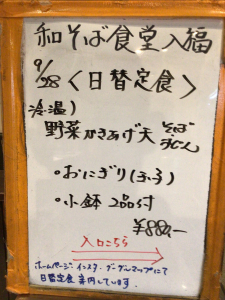 和そば食堂入福
9/28 〈日替定食〉
冷温）
野菜かきあげ天 そば
うどん
・おにぎり(ふう)
・小鉢 2品付
¥880,-
入口こちら
ホームページ・インスタ・グーグルマップにて
日替定食 案内しています